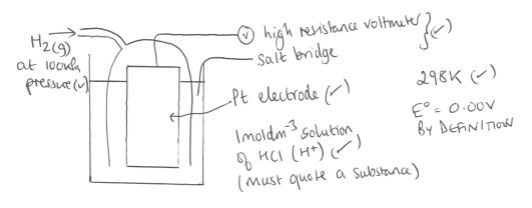 H2(g)
at 100kPa
pressure (✓)
(V) high resistance voltmeter } (✓)
salt bridge
Pt electrode (✓)
1moldm⁻³ solution
of HCl (H⁺) (✓)
(must quote a substance)
298K (✓)
E° = 0.00V
BY DEFINITION